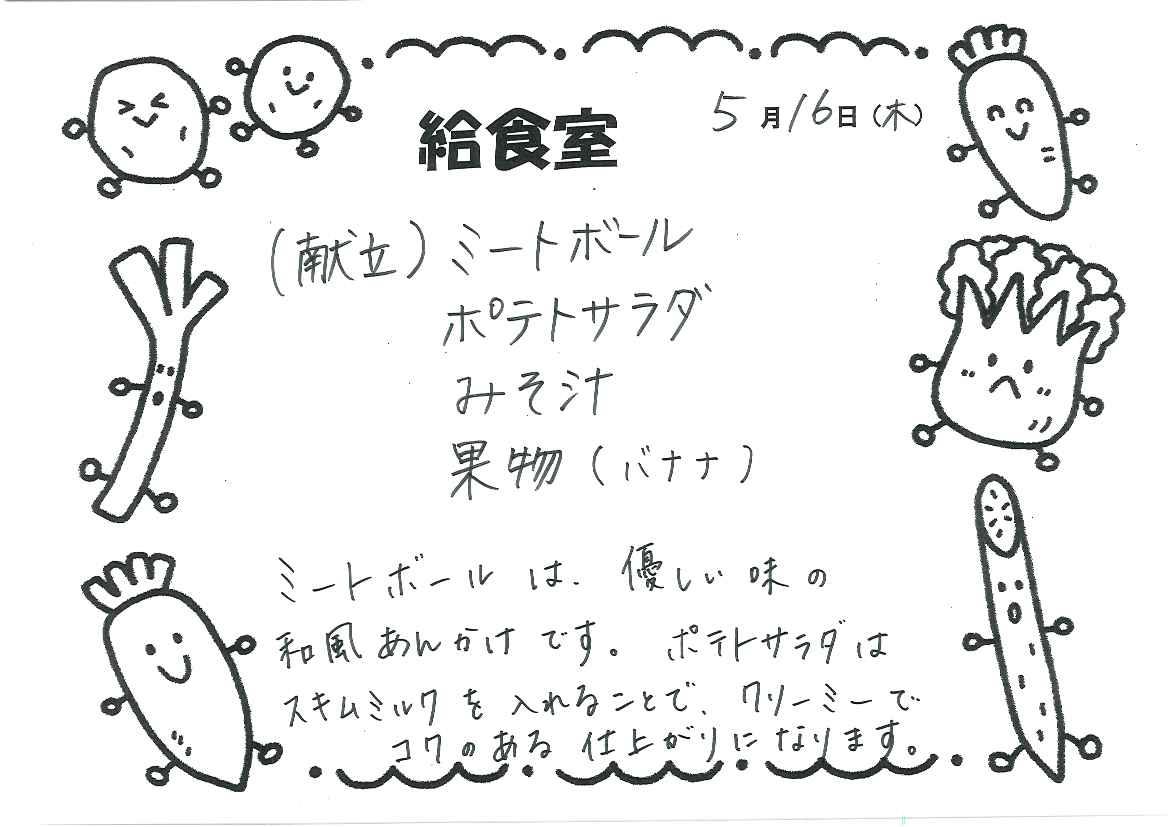 給食室
5月16日(木)
(献立)ミートボール
ポテトサラダ
みそ汁
果物(バナナ)
ミートボールは、優しい味の
和風あんかけです。ポテトサラダは
スキムミルクを入れることで、クリーミーで
コクのある仕上がりになります。